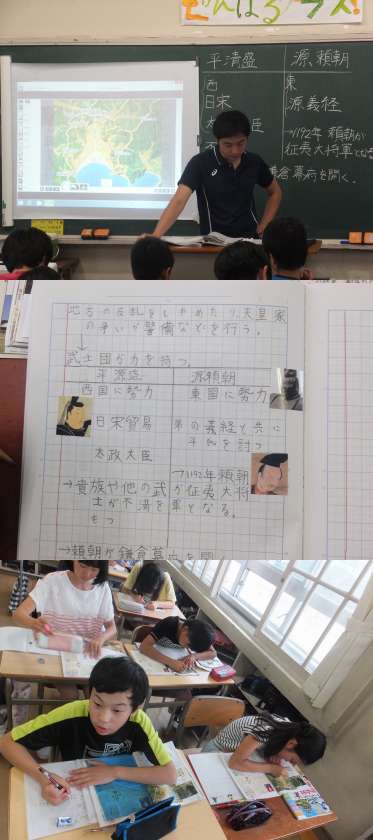 んばるクラス!
平清盛 源 頼朝
西 東
日宋 源義経
臣 →1192年 頼朝が
征夷大将軍となる
鎌倉幕府を開く。
地方の反乱をしずめたり、天皇家
の争いや警備などを行う。
↓
武士団が力を持つ。
源頼朝
西国に勢力 東国に勢力
日宋貿易 弟の義経と共に
平氏を討つ
太政大臣 →1192年頼朝
→貴族や他の武 が征夷大将
士が不満を 軍となる。
もつ
→頼朝が鎌倉幕府を